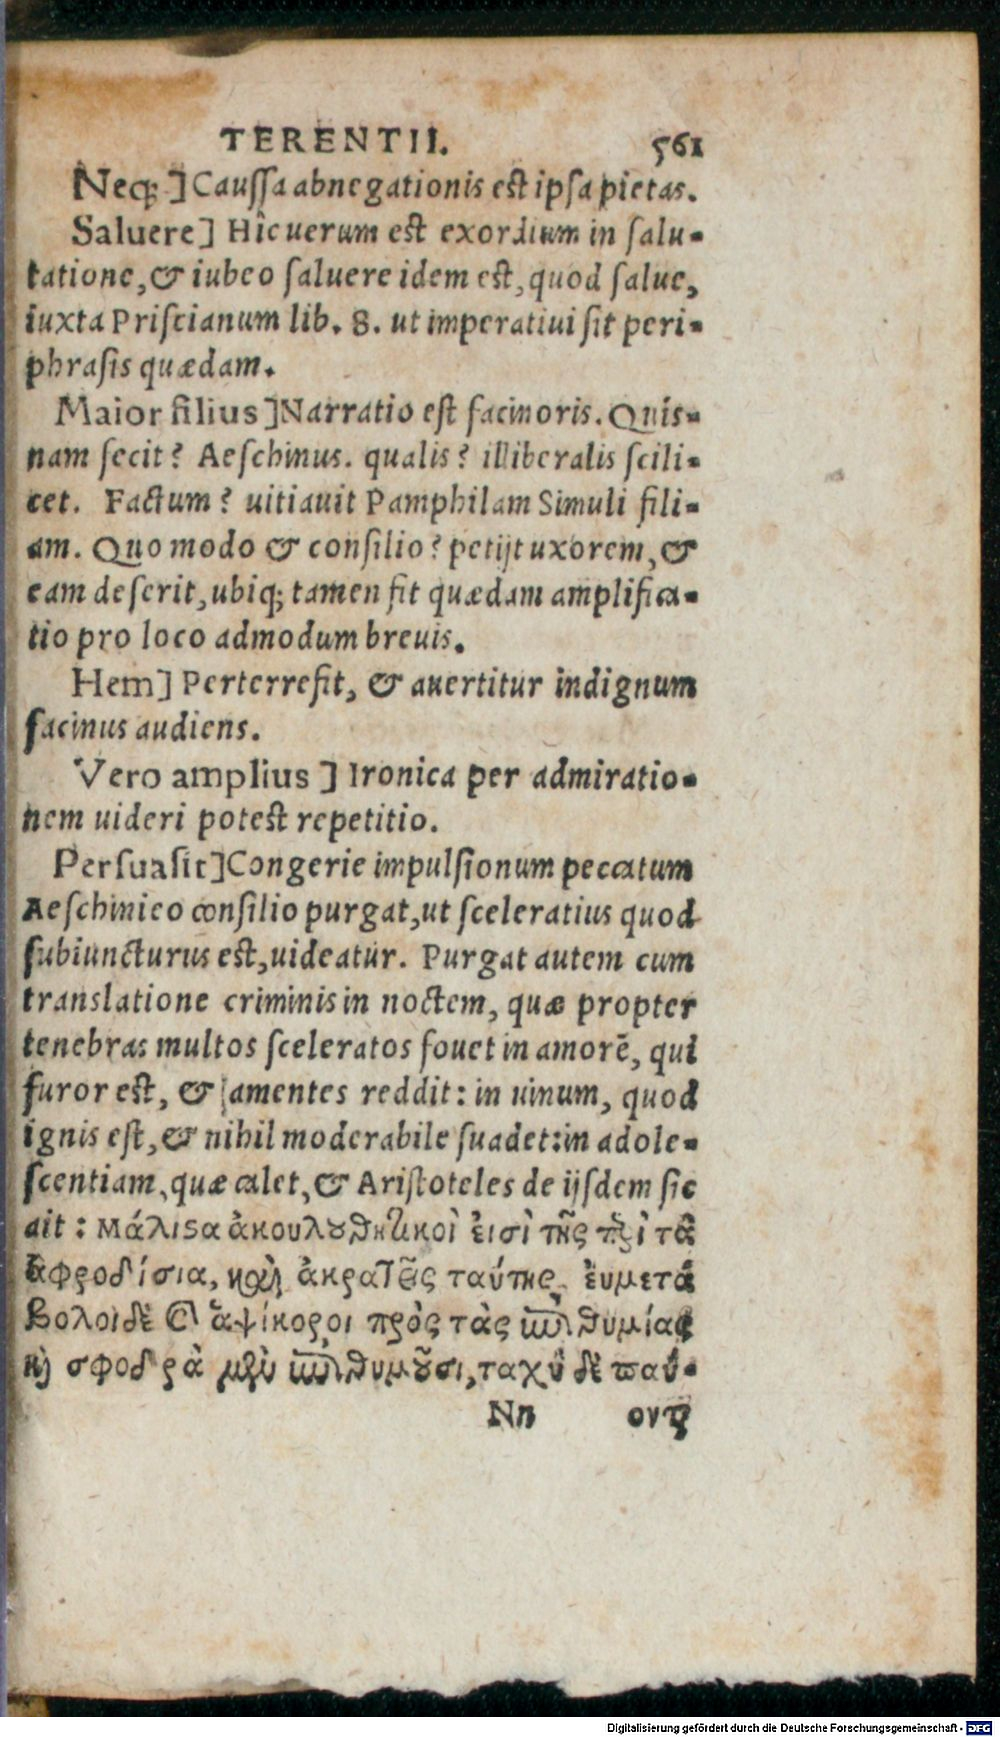 TERENTII. 561
Neq; ] Caussa abnegationis est ipsa pietas.
Saluere] Hîc uerum est exordium in salu-
tatione, & iubeo saluere idem est, quod salue,
iuxta Priscianum lib. 8. ut imperatiui sit peri-
phrasis quædam.
Maior filius] Narratio est facinoris. Quis-
nam fecit? Aeschinus. qualis? illiberalis scili-
cet. Factum? uitiauit Pamphilam Simuli fili-
am. Quo modo & consilio? petijt uxorem, &
eam deserit, ubiq; tamen fit quædam amplifica-
tio pro loco admodum breuis.
Hem] Perterrefit, & auertitur indignum
facinus audiens.
Vero amplius ] Ironica per admiratio-
nem uideri potest repetitio.
Persuasit] Congerie impulsionum peccatum
Aeschinico consilio purgat, ut sceleratius quod
subiuncturus est, uideatur. Purgat autem cum
translatione criminis in noctem, quæ propter
tenebras multos sceleratos fouet in amorē, qui
furor est, & amentes reddit: in uinum, quod
ignis est, & nihil moderabile suadet: in adole-
scentiam, quæ calet, & Aristoteles de ijsdem sic
ait: Μάλιϛα ἀκουλουθητικοὶ ἐισὶ τῆς περὶ τὰ
ἀφροδίσια, καὶ ἀκρατεῖς ταύτης, ἐυμετά
βολοι δὲ καὶ ἁψίκοροι πρὸς τὰς ἐπιθυμίας
καὶ σφοδρὰ μὲν ἐπιθυμοῦσι, ταχὺ δὲ παύ-
Nn ονται